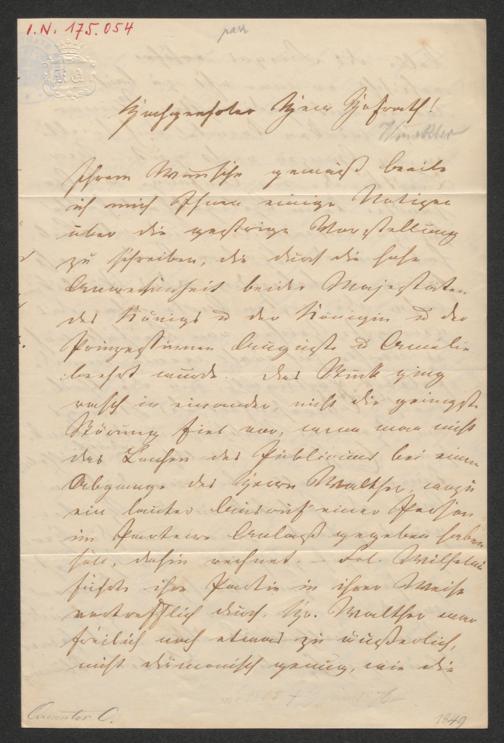 I.N. 175.054
Hochgeehrter Herr Hofrath!
Winkler
Ihrem Wunsche gemäß beeile
ich mich Ihnen einige Notizen
über die gestrige Vorstellung
zu schreiben, die durch die hohe
Anwesenheit beider Majestäten
des Königs u der Königin u der
Prinzessinnen Auguste u Amalie
beehrt wurde. Das Stück ging
rasch in einander, nicht die geringste
Störung fiel vor, wenn man nicht
das Lachen des Publicums bei einem
Abgange des Herrn Walther, wozu
ein lauter Ausruf einer Person
im Parterre Anlaß gegeben haben
soll, dahin rechnet. – Frl. Wilhelmi
führte ihre Partie in ihrer Weise
vortrefflich durch. Hr. Walther war
freilich noch etwas zu äußerlich,
nicht dämonisch genug, wie die
1849